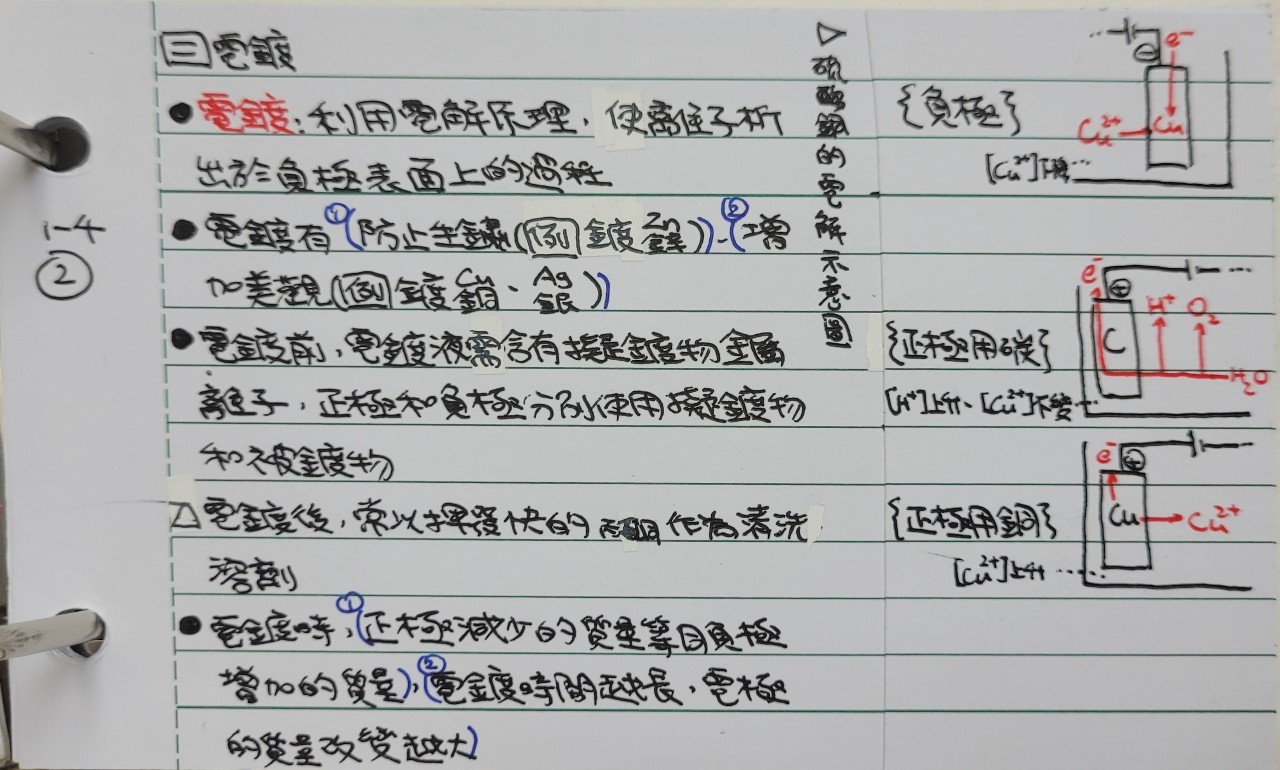 1-4
②
三 電鍍
● 電鍍：利用電解原理，使離子析
出於負極表面上的過程
● 電鍍有①(防止生鏽(例 鍍鋅Zn))、②(增
加美觀(例 鍍銅Cu、銀Ag))
● 電鍍前，電鍍液需含有擬鍍物金屬
離子，正極和負極分別使用擬鍍物
和被鍍物
△ 電鍍後，常以揮發快的丙酮作為清洗
溶劑
● 電鍍時，①(正極減少的質量等同負極
增加的質量)，②(電鍍時間越長，電極
的質量改變越大)
▷硫酸銅的電解示意圖
{負極}
e⁻
⊖
Cu²⁺
Cu
[Cu²⁺]下降…
{正極用碳}
e⁻
⊕
C
H⁺
O₂
H₂O
[H⁺]上升、[Cu²⁺]不變…
{正極用銅}
e⁻
⊕
Cu
Cu²⁺
[Cu²⁺]上升…